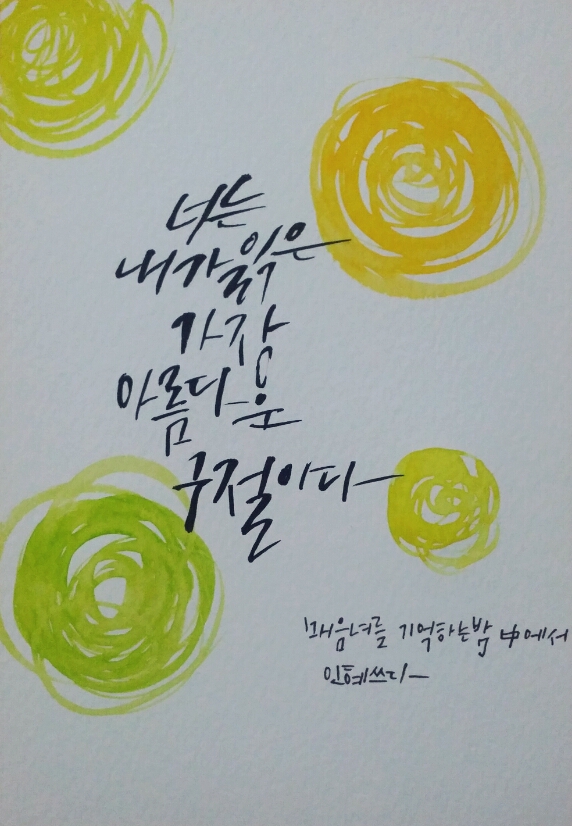 너는
내가 읽은
가장
아름다운
구절이다
'매음녀를 기억하는밤 中에서
인혜쓰다